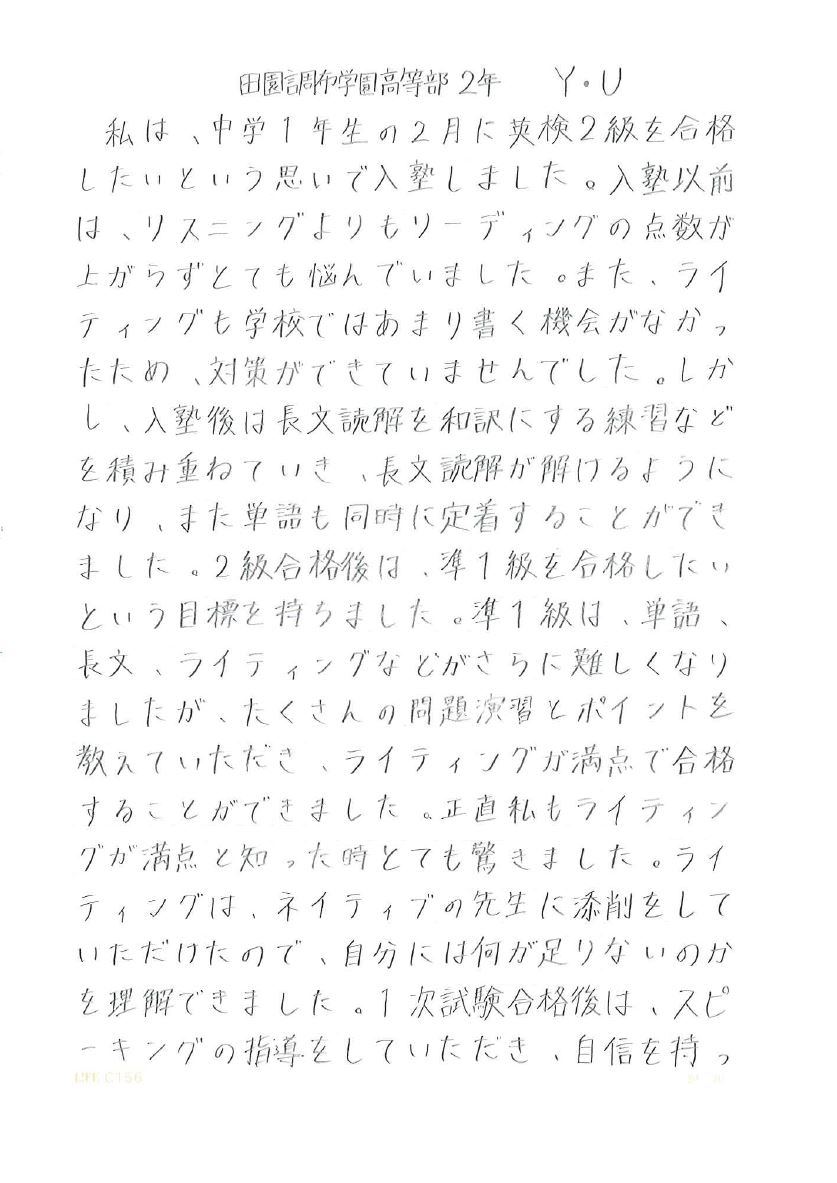 田園調布学園高等部 2年 Y・U
私は、中学1年生の2月に英検2級を合格
したいという思いで入塾しました。入塾以前
は、リスニングよりもリーディングの点数が
上がらずとても悩んでいました。また、ライ
ティングも学校ではあまり書く機会がなかっ
たため、対策ができていませんでした。しか
し、入塾後は長文読解を和訳にする練習など
を積み重ねていき、長文読解が解けるように
なり、また単語も同時に定着することができ
ました。2級合格後は、準1級を合格したい
という目標を持ちました。準1級は、単語、
長文、ライティングなどがさらに難しくなり
ましたが、たくさんの問題演習とポイントを
教えていただき、ライティングが満点で合格
することができました。正直私もライティン
グが満点と知った時とても驚きました。ライ
ティングは、ネイティブの先生に添削をして
いただけたので、自分には何が足りないのか
を理解できました。1次試験合格後は、スピ
ーキングの指導をしていただき、自信を持っ
C156